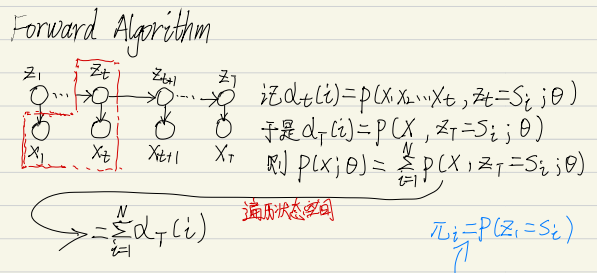 Forward Algorithm
z₁ ... z_t z_{t+1} ... z_T
x₁ x_t x_{t+1} x_T
记 α_t(i)=p(x₁x₂...x_t, z_t=S_i;θ)
于是 α_T(i)=p(X, z_T=S_i;θ)
则 p(X;θ) = \sum_{i=1}^{N} p(X, z_T=S_i;θ)
遍历状态空间
= \sum_{i=1}^{N} α_T(i)
π_i=P(z₁=S_i)